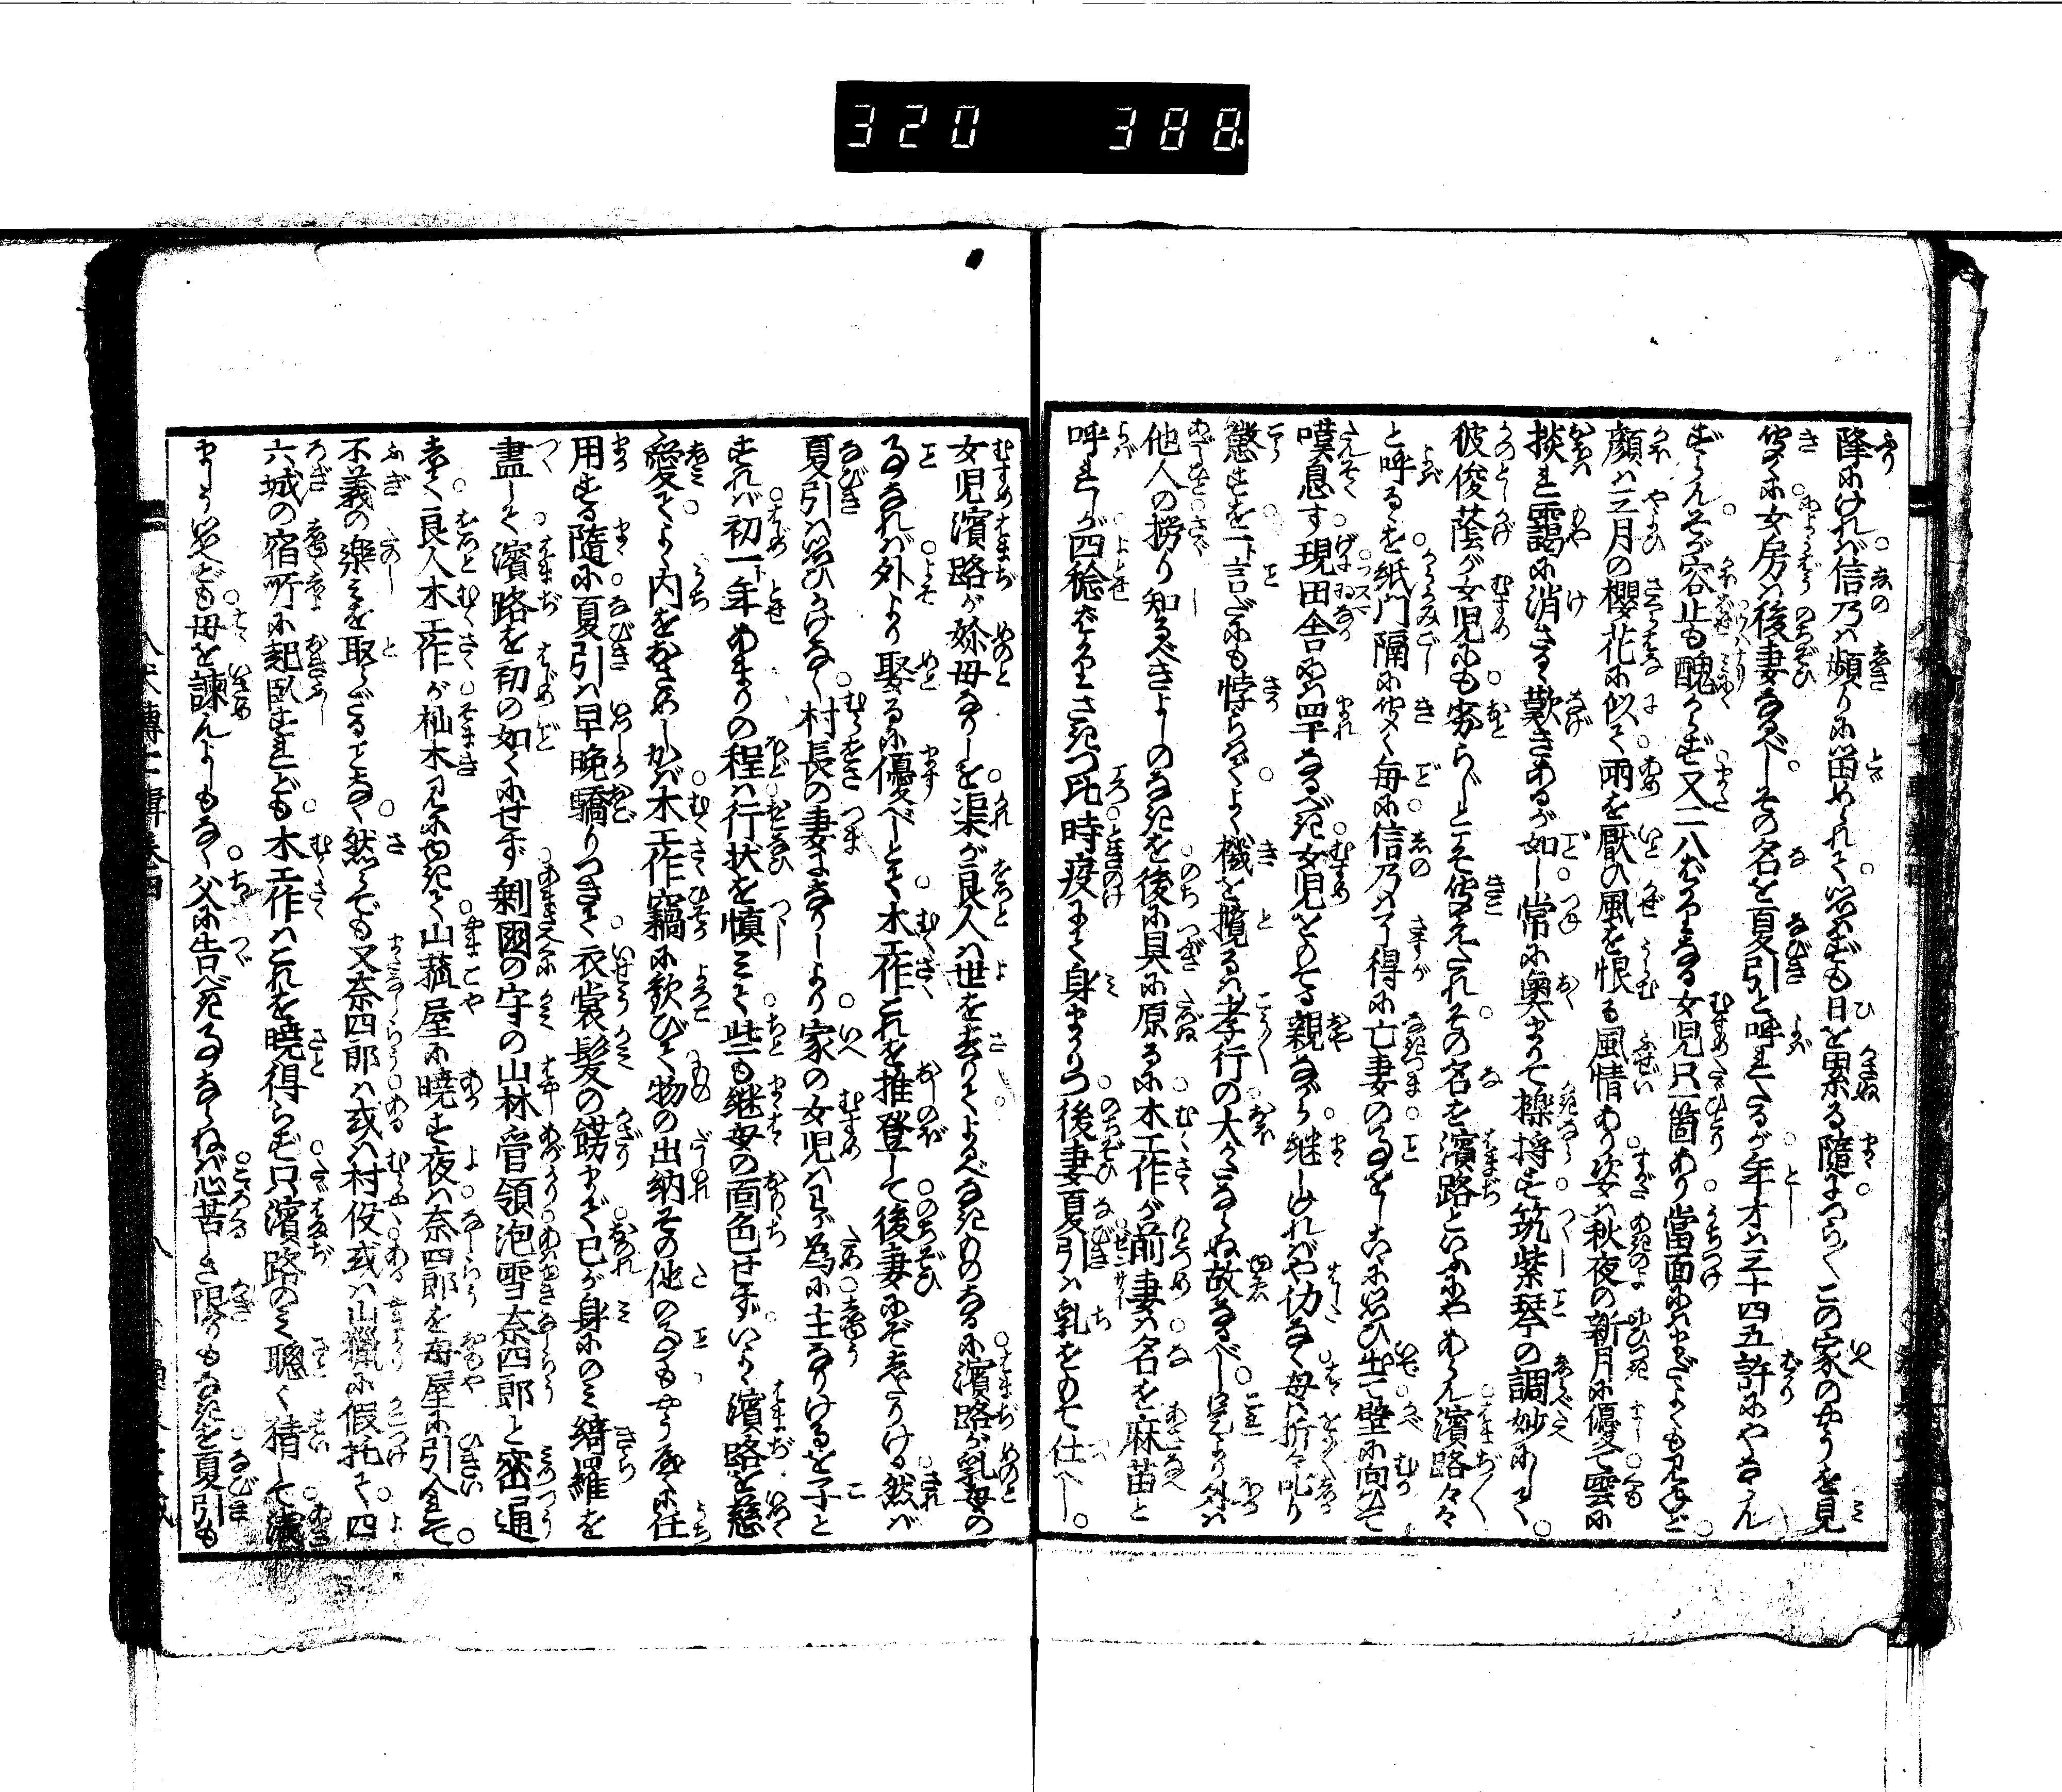 320 388
降にければ信乃は頻りに留められて思はずも日を累る隨につら〳〵この家のやうを見
聞くに女房は後妻なるべしその名を夏引と呼れたるが年才は三十四五許にやあらん
ずらんそが容止も醜からず又二八ばかりなる女児只一箇あり當面にはまだよくも見ねど
顔は三月の櫻花に似て雨を厭ひ風を恨る風情あり姿は秋夜の新月に優て雲に
掞れ靄に消さるゝ歎きあるが如し常に奥まりて操持す筑紫琴の調妙にして
彼俊蔭が女児にも劣らじとこそ聞えたれその名を濱路といふにやあらん濱路々々
と呼るを紙門隔に聞く毎に信乃はさすが得に亡妻の事をしも思ひ出て壁に向ひて
嘆息す現田舎には罕なるべき女児をもてる親ながら継しければや彷なく母は折々叱り
懲すを一言だも悖らずよく機を攬るは孝行の大かたならぬ故なるべし是より外は
他人の撈り知るべきよしのなきを後に具に原るに木工作が前妻は名を麻苗と
呼れしが四稔ばかりさきつ比時疫にて身まかりつ後妻夏引は乳をもて仕へし
女児濱路が妳母なりしを渠が良人は世を去りてよるべなきものなるに濱路が乳母の
事なれば外より娶るに優べしとて木工作これを推登して後妻にぞしたりける然ば
夏引は思ひかけなく村長の妻になりしより家の女児はわが為に主なりけるを子と
すれば初一年あまりの程は行状を慎みて些も継母の面色せずいよゝ濱路を慈
愛てよく内をおさめしかば木工作竊に歓びて物の出納その他の事もやうやく任
用する隨に夏引は早晩驕りつきて衣裳髪の餝まで己が身にのみ綺羅を
盡して濱路を初の如くにせず剰國の守の山林管領泡雪奈四郎と密通
しく良人木工作が杣木見にゆきて山菰屋に曉す夜は奈四郎を母屋に引入て
不義の樂みを取らざることなく然らでも又奈四郎は或は村役或は山獵に假托て四
六城の宿所に起臥すれども木工作はこれを曉得らず只濱路のみ聡く猜して淺
ましう思へども母を諫んよしもなく父に告べき事ならねば心苦しき限りもなきを夏引も